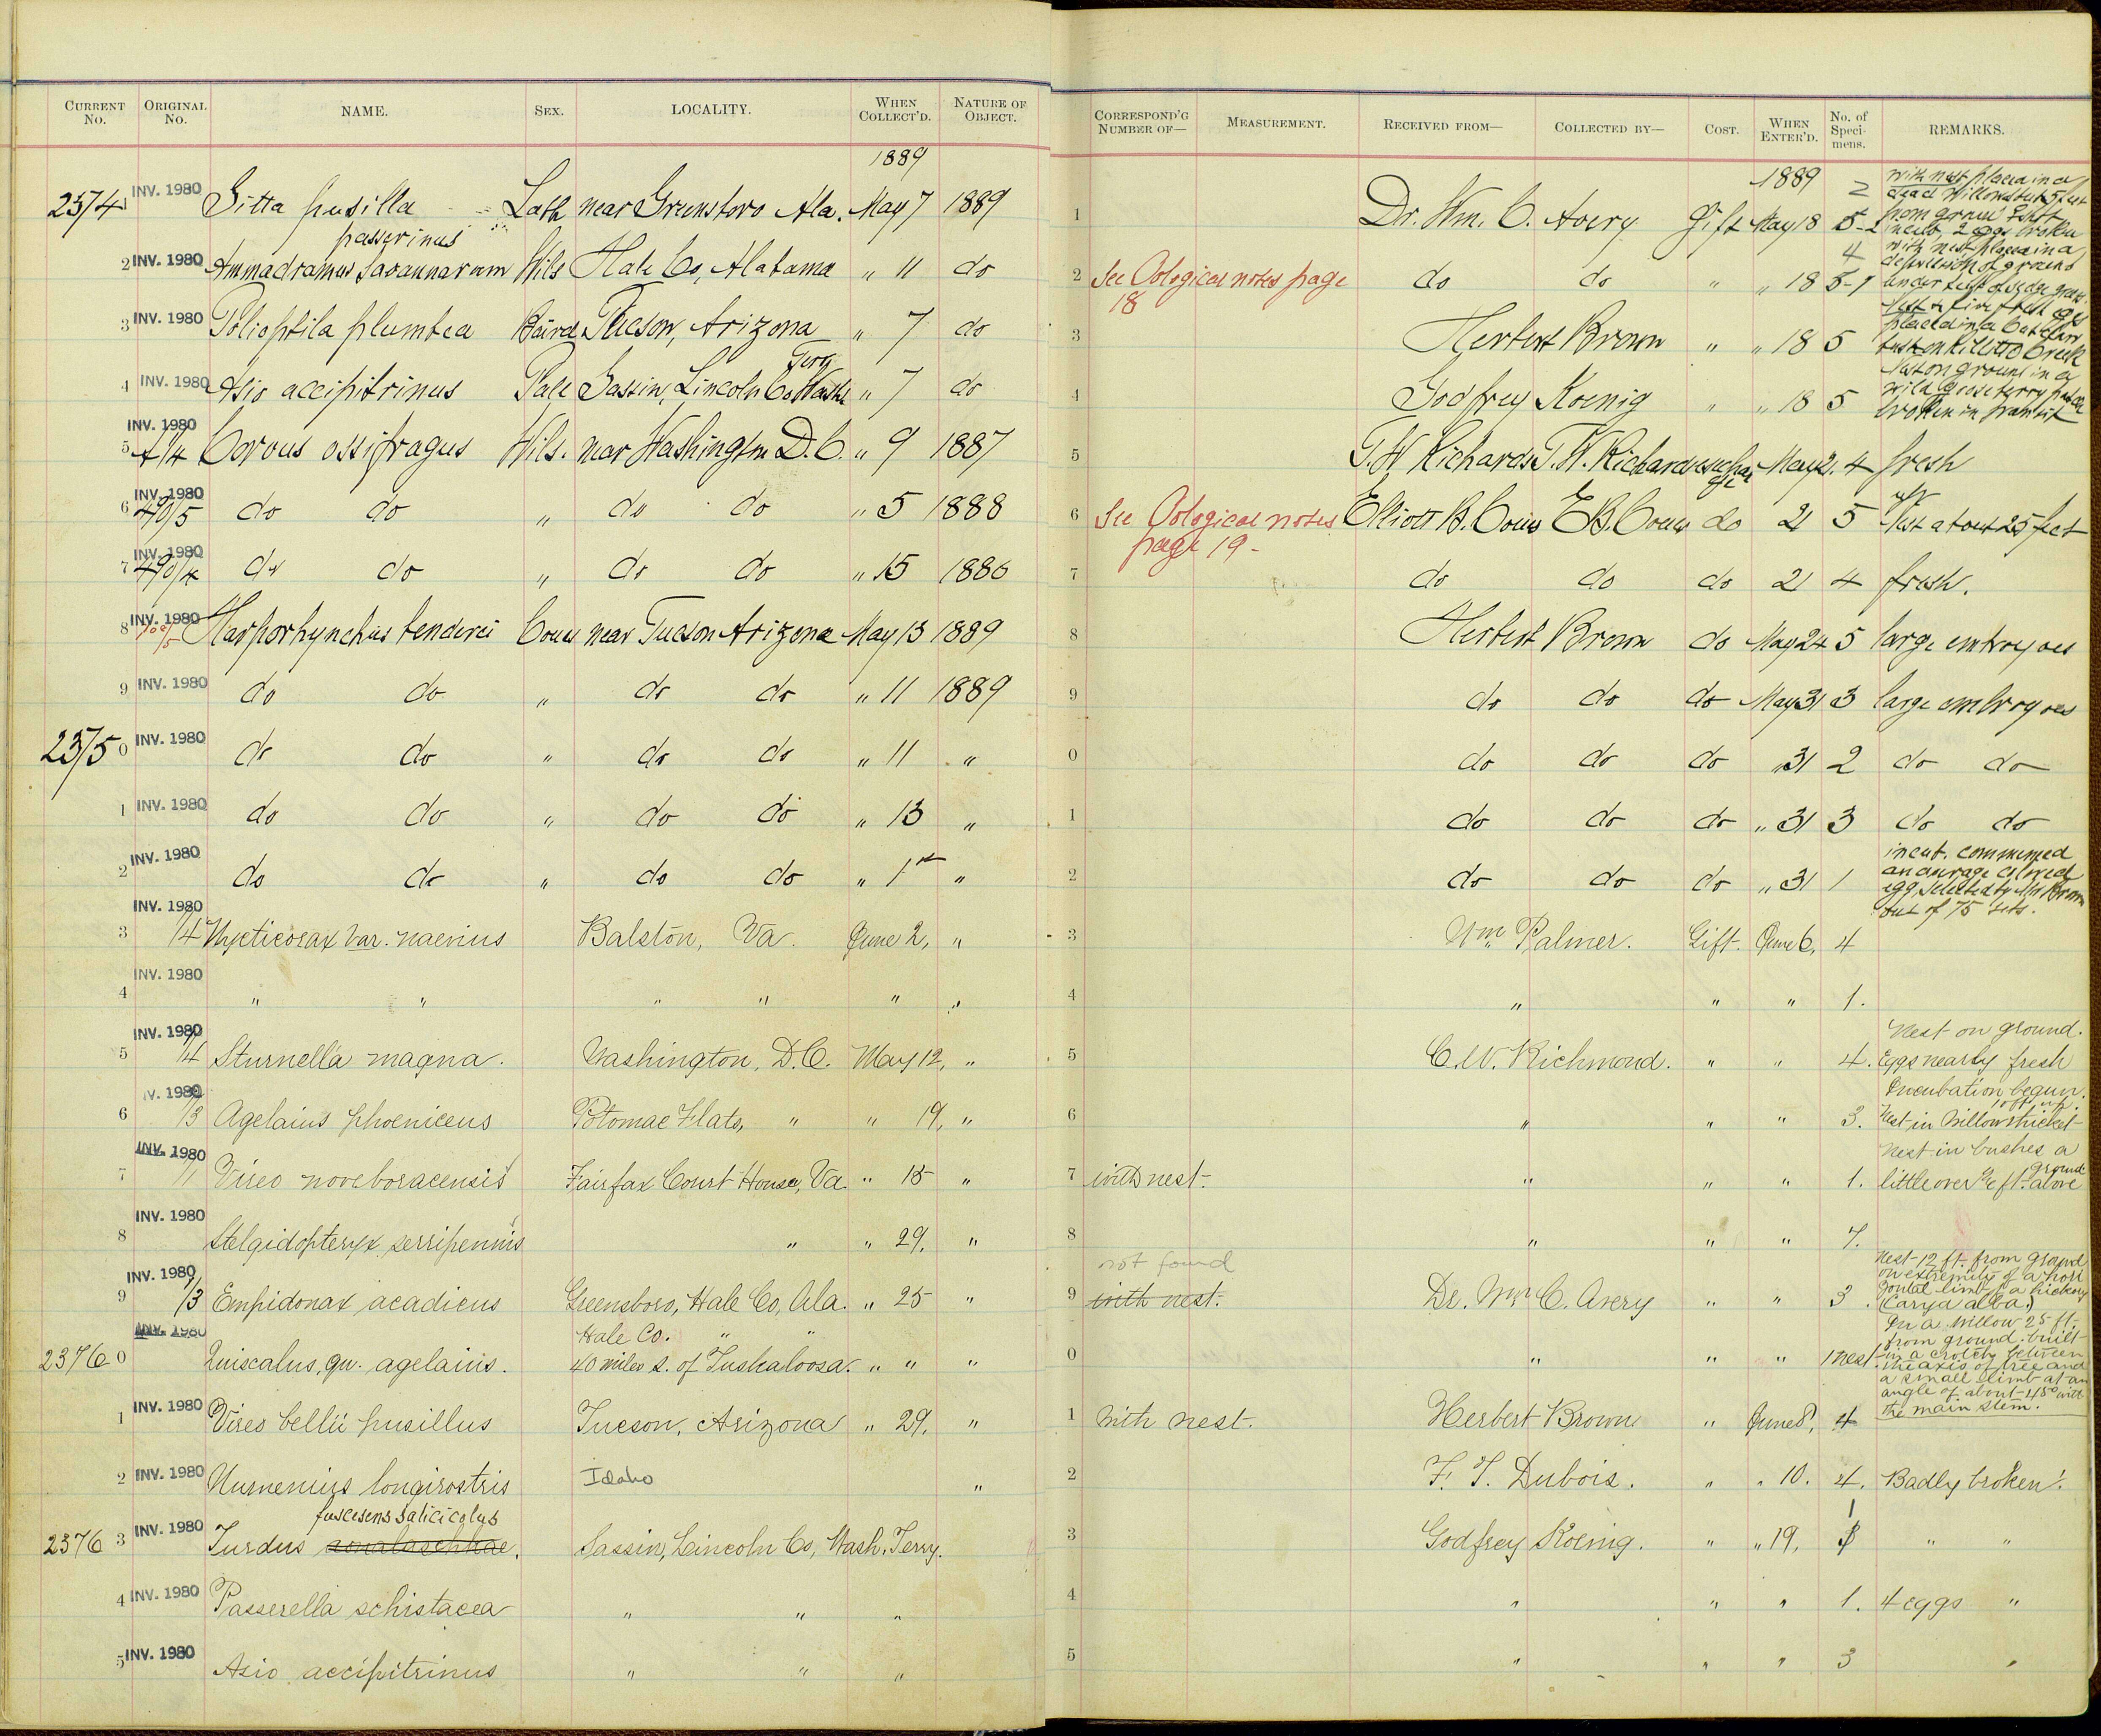 CURRENT No. ORIGINAL No. NAME. SEX. LOCALITY. WHEN COLLECT'D. NATURE OF OBJECT.
1889
2374 INV. 1980 Sitta pusilla Lath near Greensboro Ala. May 7 1889
passerinus
2 INV. 1980 Ammodramus savannarum Wils Hale Co, Alabama " 11 do
3 INV. 1980 Polioptila plumbea Baird Tucson, Arizona " 7 do
Terr
4 INV. 1980 Asio accipitrinus Pall Sassin, Lincoln Co Wash " 7 do
INV. 1980
5 Corvus ossifragus Wils. near Washington D.C. " 9 1887
INV. 1980
6 490/5 do do " do do " 5 1888
INV. 1980
7 490/4 do do " do do " 15 1886
8 INV. 1980 Harporhynchus bendirei Coues near Tucson Arizona May 13 1889
9 INV. 1980 do do " do do " 11 1889
2375 0 INV. 1980 do do " do do " 11 "
1 INV. 1980 do do " do do " 13 "
2 INV. 1980 do do " do do " 1st "
INV. 1980
3 1/4 Nycticorax var. naevius Balston, Va. June 2, "
INV. 1980
4 " " " " " "
INV. 1980
5 1/4 Sturnella magna. Washington, D.C. May 12, "
INV. 1980
6 1/3 Agelaius phoeniceus Potomac Flats, " " 19, "
INV. 1980
7 1/1 Vireo noveboracensis Fairfax Court House, Va " 15 "
INV. 1980
8 Stelgidopteryx serripennis " " 29. "
INV. 1980
9 1/3 Empidonax acadicus Greensboro, Hale Co, Ala. " 25 "
INV. 1980 Hale Co. " "
2376 0 Quiscalus, qu. agelaius. 40 miles s. of Tuskaloosa. " " "
1 INV. 1980 Vireo bellii pusillus Tucson, Arizona " 29. "
2 INV. 1980 Numenius longirostris Idaho "
fuscesens salicicolus
2376 3 INV. 1980 Turdus aonalaschkae. Sassin, Lincoln Co, Wash. Terry.
4 INV. 1980 Passerella schistacea " " "
5 INV. 1980 Asio accipitrinus " " "
CORRESPOND'G NUMBER OF— MEASUREMENT. RECEIVED FROM— COLLECTED BY— COST. WHEN ENTER'D. No. of Specimens. REMARKS.
1889 2
with nest placed in a
dead willow stub 5 feet
1 Dr. Wm. C. Avery Gift May 18 5-2
from ground
2 eggs broken
4 with nest placed in a
depression of ground
2 See Oological notes page do do " " 18 5-1
18
under tuft of sedge grass.
Nest & five fresh eggs
3 Herbert Brown " " 18 5
placed in a Cat claw
bush on Rillitto Creek
Nest on ground in a
4 Godfrey Koenig " " 18 5
wild gooseberry patch
broken in transit
5 T. W. Richards T. W. Richards exchange May 21. 4 fresh
6 See Oological notes Elliott B. Coues E B. Coues do 21 5 Nest about 25 feet
page 19-
up
7 do do do 21 4 fresh.
8 Herbert Brown do May 24 5 large embryoes
9 do do do May 31 3 large embryoes
0 do do do " 31 2 do do
1 do do do " 31 3 do do
incub. commenced
2 do do do " 31 1
an average colored
egg, selected by Mr Brown
out of 75 sets.
3 Wm. Palmer. Gift. June 6, 4
4 " " " 1.
Nest on ground.
5 C. W. Richmond. " " 4. Eggs nearly fresh
Incubation begun.
10 ft. up.
6 " " " 3. Nest in Willow thicket
Nest in bushes a
7 with nest. " " " 1. little over ft. above ground
8 " " " 7.
not found
Nest-12 ft. from ground
on extremity of a hori
9 with nest. Dr. Wm C. Avery " " 3.
zontal limb of a hickory
(Carya alba.)
In a willow 25 ft.
from ground. built
0 " " " 1 nest
in a crotch between
the axis of tree and
a small limb at an
angle of about 45° with
the main stem.
1 With nest. Herbert Brown " June 8, 4
2 F. T. Dubois. " " 10. 4. Badly broken!
1
3 Godfrey Koenig. " " 19, " "
4 " " " 1. 4 eggs "
5 " " " 3 "